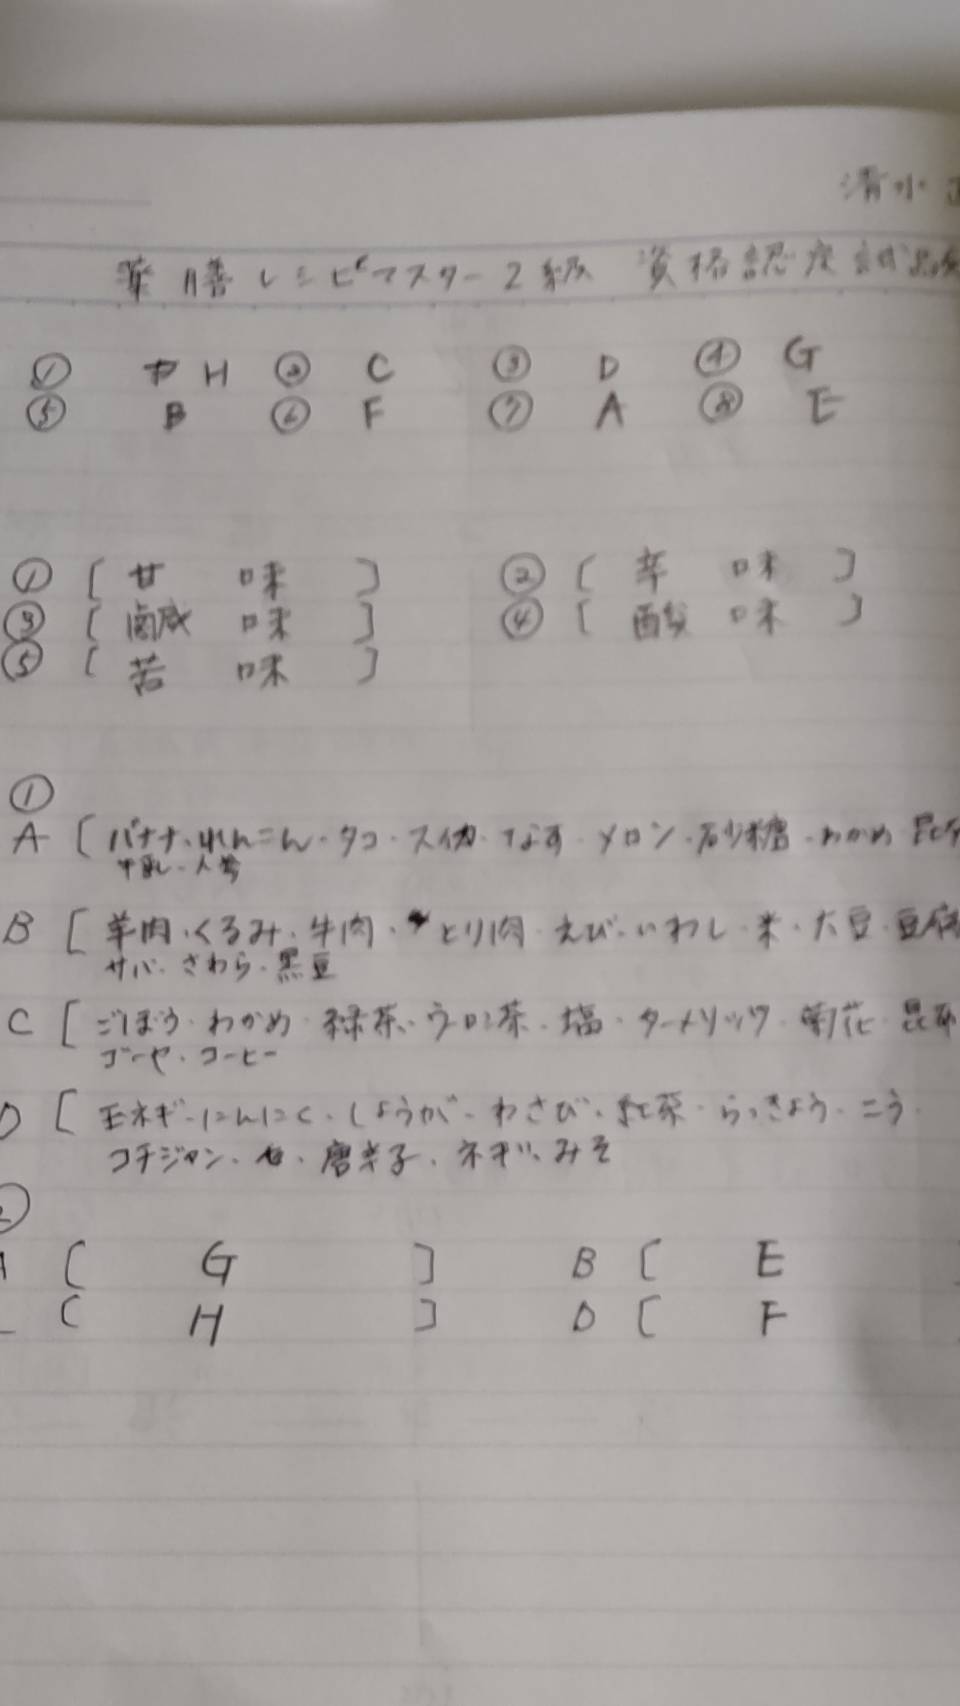 清水
薬膳レシピマスター2級 資格認定試験
① H ② C ③ D ④ G
⑤ B ⑥ F ⑦ A ⑧ E
① [ 甘 味 ] ② [ 辛 味 ]
③ [ 鹹 味 ] ④ [ 酸 味 ]
⑤ [ 苦 味 ]
①
A [ バナナ・れんこん・タコ・スイカ・なす・メロン・砂糖・わかめ
牛乳・人参
B [ 羊肉・くるみ・牛肉・とり肉・えび・いわし・米・大豆・豆腐
サバ・さわら・黒豆
C [ ごぼう・わかめ・緑茶・ウーロン茶・塩・ターメリック・菊花・昆布
ゴーヤ・コーヒー
D [ 玉ネギ・にんにく・しょうが・わさび・紅茶・らっきょう・こう
コチジャン・唐辛子・ネギ・みそ
②
A [ G ] B [ E
[ H ] D [ F